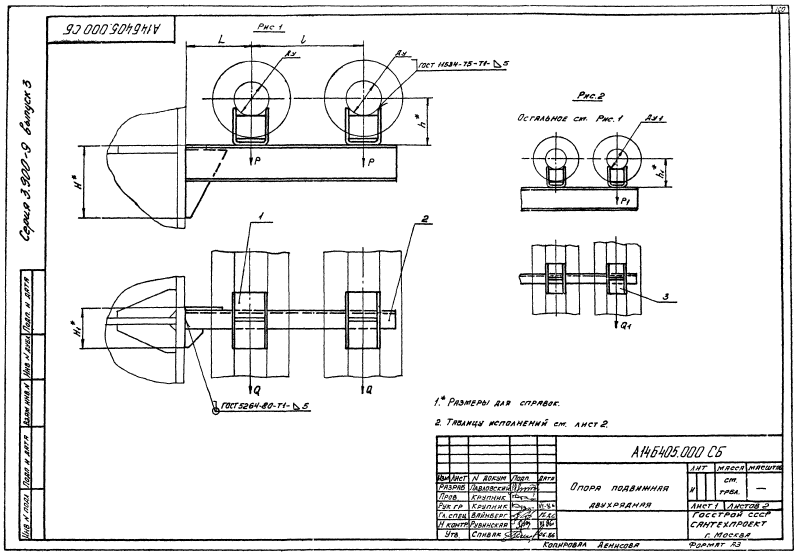 160
А14Б405.000 СБ
Серия 3.900-9 выпуск 3
Рис. 1
L
l
Ду
Ду
ГОСТ 11534-75-Т1-⊿5
h*
H*
P
P
Рис. 2
Остальное см. Рис. 1
Ду1
h1*
P1
1
2
H1*
Q
Q
ГОСТ 5264-80-Т1-⊿5
3
Q1
1.* Размеры для справок.
2. Таблицу исполнений см. лист 2.
Подп. и дата
Взам. инв. №
Подп. и дата
Инв. № подл.
А14Б405.000 СБ
Изм Лист № докум Подп. Дата
Разраб Павловский
Пров. Крупник
Рук. гр Крупник
Гл. спец Вайнберг
Н контр Рубинская
Утв. Спивак
Опора подвижная
двухрядная
Лит Масса Масштаб
И см. табл. —
Лист 1 Листов 2
Госстрой СССР
Сантехпроект
г. Москва
Копировал Денисова Формат А3